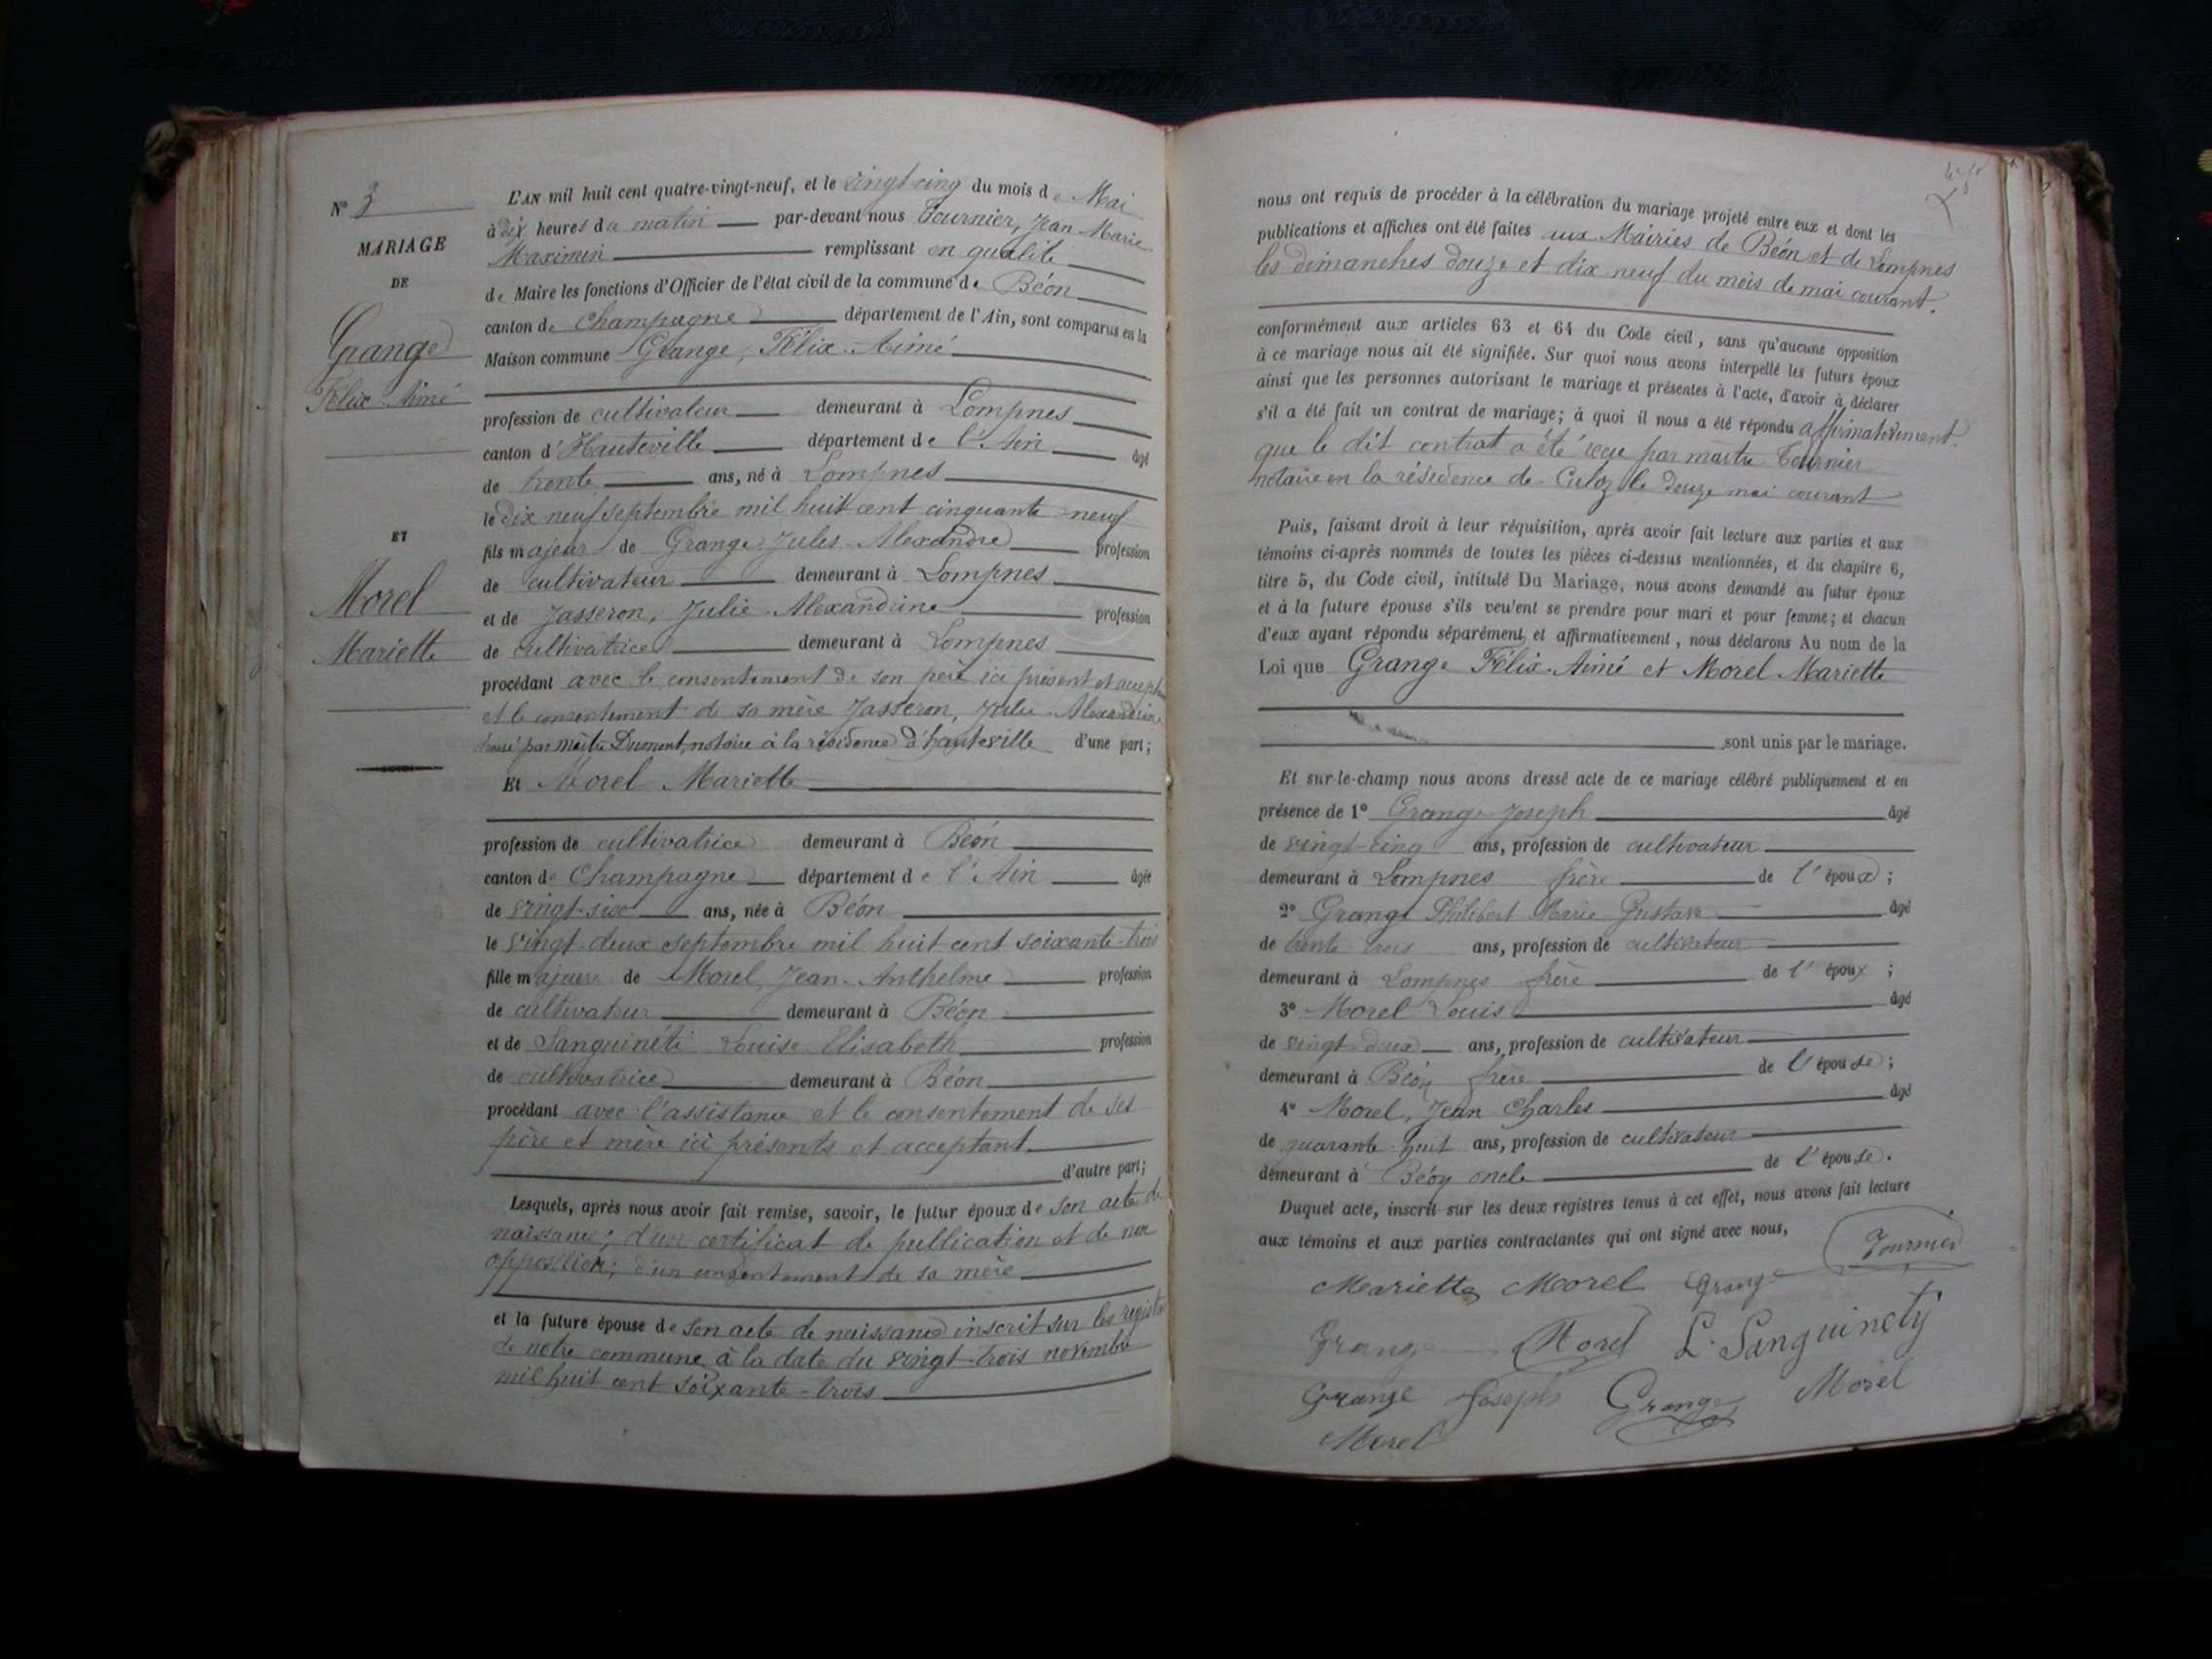 N° 3
MARIAGE
DE
Grange
Félix Aimé
ET
Morel
Mariette
L'AN mil huit cent quatre-vingt-neuf, et le vingt-cinq du mois de Mai
à dix heures du matin par-devant nous Tournier, Jean Marie
Maximin remplissant en qualité
de Maire les fonctions d'Officier de l'état civil de la commune de Béon
canton de Champagne département de l'Ain, sont comparus en la
Maison commune Grange, Félix-Aimé
profession de cultivateur demeurant à Lompnes
canton d'Hauteville département de l'Ain âgé
de trente ans, né à Lompnes
le dix neuf septembre mil huit cent cinquante neuf
fils majeur de Grange Jules Alexandre profession
de cultivateur demeurant à Lompnes
et de Jasseron, Julie Alexandrine profession
de cultivatrice demeurant à Lompnes
procédant avec le consentement de son père ici présent et
et le consentement de sa mère Jasseron, Julie Alexandrine
par maître Dumont, notaire à la résidence d'hauteville d'une part;
Et Morel Mariette
profession de cultivatrice demeurant à Béon
canton de Champagne département de l'Ain âgée
de vingt-six ans, née à Béon
le vingt-deux septembre mil huit cent soixante-trois
fille majeure de Morel, Jean-Anthelme profession
de cultivateur demeurant à Béon
et de Sanguinéti Louise Elisabeth profession
de cultivatrice demeurant à Béon
procédant avec l'assistance et le consentement de ses
père et mère ici présents et acceptant
d'autre part;
Lesquels, après nous avoir fait remise, savoir, le futur époux de son acte de
naissance; d'un certificat de publication et de non
opposition; d'un consentement de sa mère
et la future épouse de son acte de naissance inscrit sur les registres
de notre commune à la date du vingt-trois novembre
mil huit cent soixante-trois
nous ont requis de procéder à la célébration du mariage projeté entre eux et dont les
publications et affiches ont été faites aux Mairies de Béon et de Lompnes
les dimanches douze et dix neuf du mois de mai courant.
conformément aux articles 63 et 64 du Code civil, sans qu'aucune opposition
à ce mariage nous ait été signifiée. Sur quoi nous avons interpellé les futurs époux
ainsi que les personnes autorisant le mariage et présentes à l'acte, d'avoir à déclarer
s'il a été fait un contrat de mariage; à quoi il nous a été répondu affirmativement.
que le dit contrat a été reçu par maître Tournier
notaire en la résidence de Culoz le douze mai courant
Puis, faisant droit à leur réquisition, après avoir fait lecture aux parties et aux
témoins ci-après nommés de toutes les pièces ci-dessus mentionnées, et du chapitre 6,
titre 5, du Code civil, intitulé Du Mariage, nous avons demandé au futur époux
et à la future épouse s'ils veulent se prendre pour mari et pour femme; et chacun
d'eux ayant répondu séparément, et affirmativement, nous déclarons Au nom de la
Loi que Grange Félix-Aimé et Morel Mariette
sont unis par le mariage.
Et sur-le-champ nous avons dressé acte de ce mariage célébré publiquement et en
présence de 1° Grange Joseph âgé
de vingt-cinq ans, profession de cultivateur
demeurant à Lompnes frère de l'époux;
2° Grange Philibert Marie Gustave âgé
de trente trois ans, profession de cultivateur
demeurant à Lompnes frère de l'époux;
3° Morel Louis âgé
de vingt-deux ans, profession de cultivateur
demeurant à Béon frère de l'épouse;
4° Morel, Jean Charles âgé
de quarante huit ans, profession de cultivateur
demeurant à Béon oncle de l'épouse.
Duquel acte, inscrit sur les deux registres tenus à cet effet, nous avons fait lecture
aux témoins et aux parties contractantes qui ont signé avec nous,
Tournier
Mariette Morel Grange
Grange Morel L. Sanguinety
Grange Joseph Grange Morel
Morel